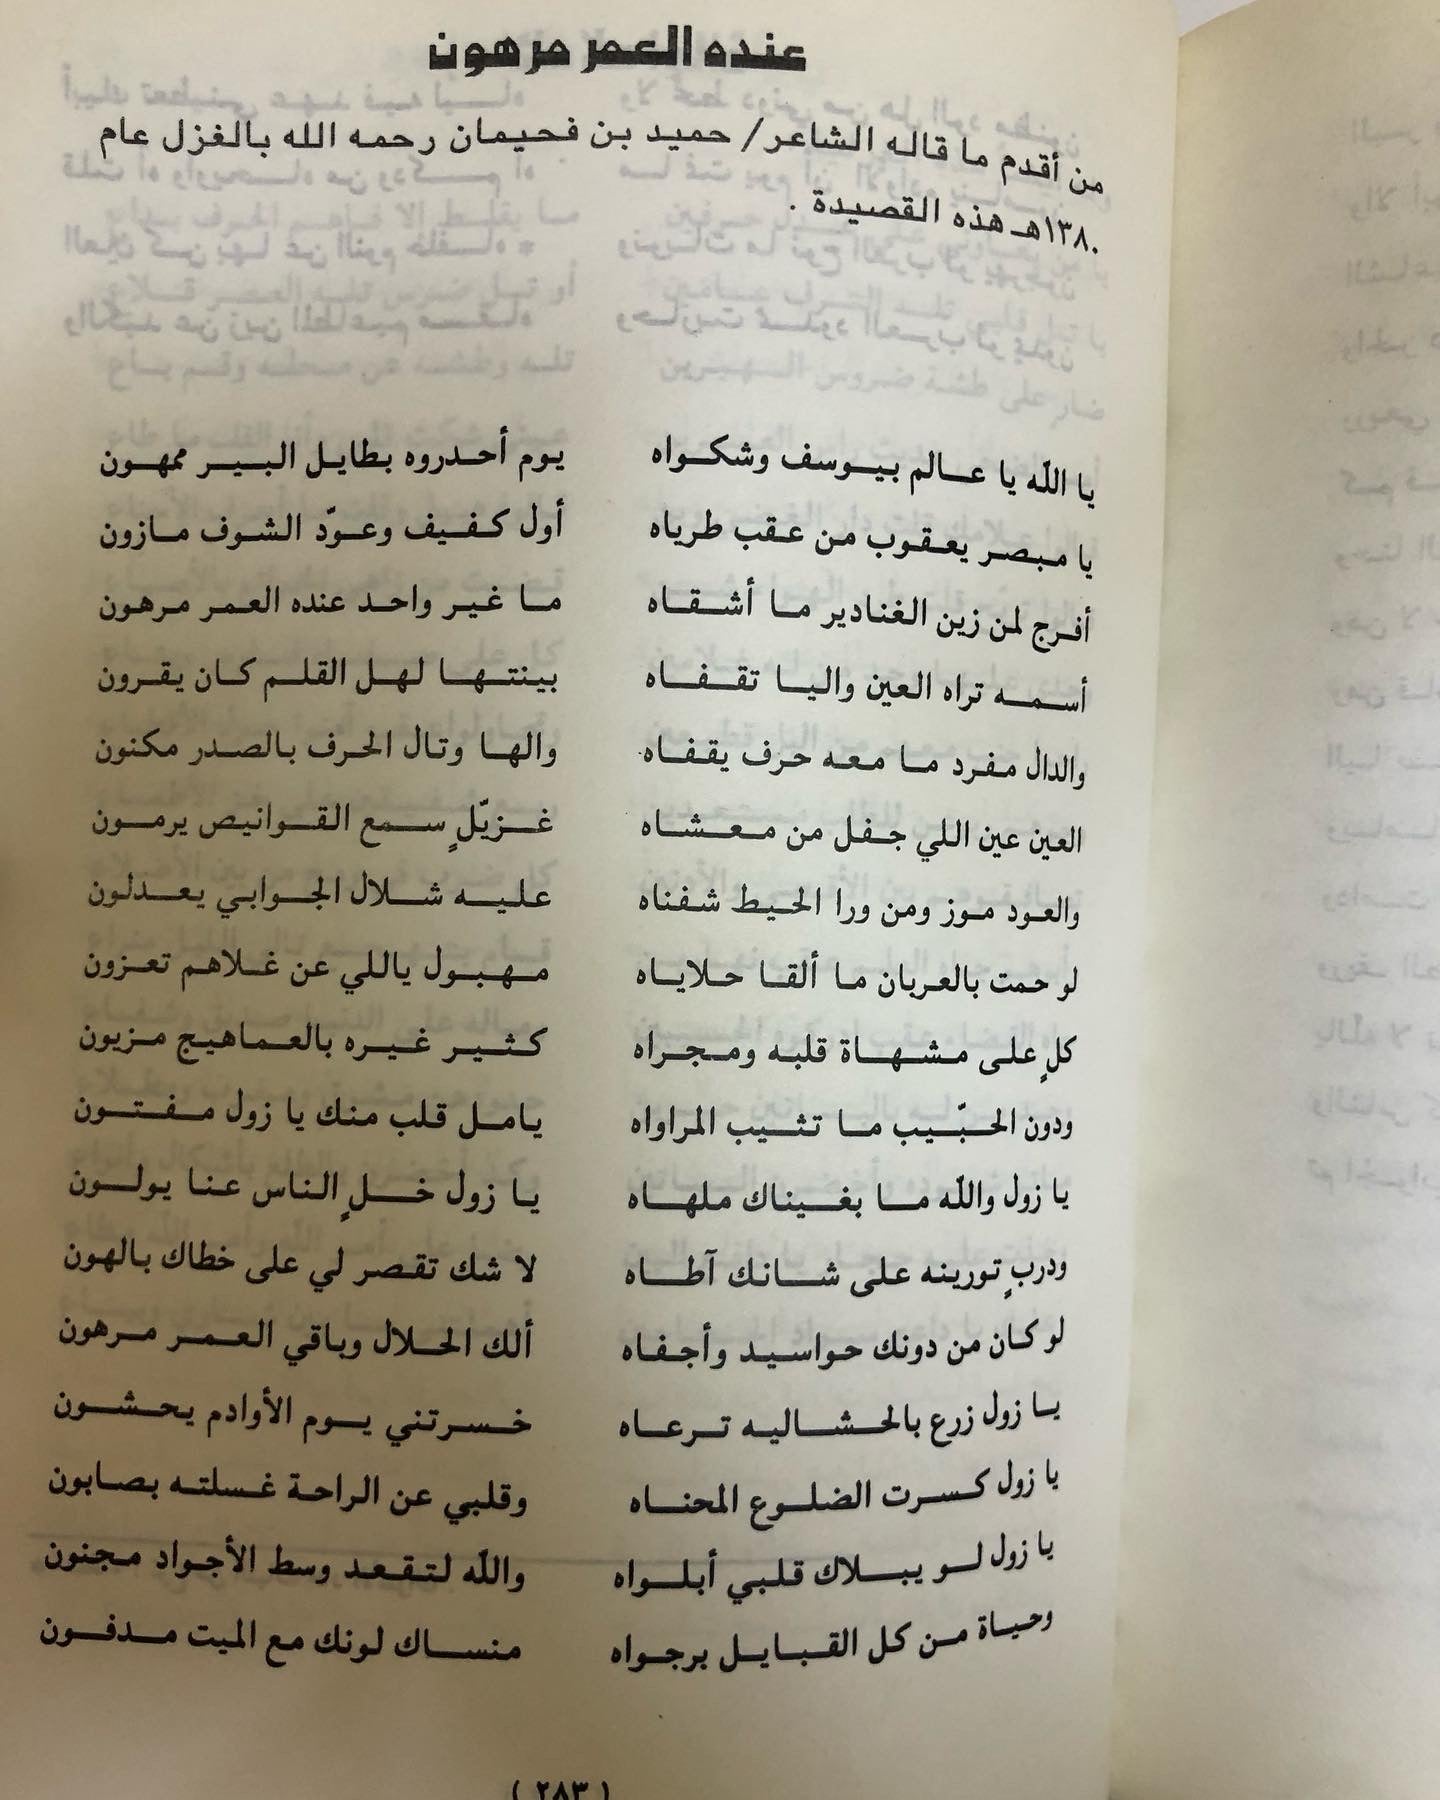 عنده العمر مرهون
من أقدم ما قاله الشاعر/ حميد بن فحيمان رحمه الله بالغزل عام
١٣٨٠هـ هذه القصيدة .
يا الله يا عالم بيوسف وشكواه يوم أحدروه بطايل البير ممهون
يا مبصر يعقوب من عقب طرياه أول كفيف وعوّد الشوف مازون
أفرج لمن زين الغنادير ما أشقاه ما غير واحد عنده العمر مرهون
أسمه تراه العين واليا تقفاه بينتها لهل القلم كان يقرون
والدال مفرد ما معه حرف يقفاه والها وتال الحرف بالصدر مكنون
العين عين اللي جفل من معشاه غزيّلٍ سمع القوانيص يرمون
والعود موز ومن ورا الحيط شفناه عليه شلال الجوابي يعدلون
لو حمت بالعربان ما ألقا حلاياه مهبول ياللي عن غلاهم تعزون
كلٍ على مشهاة قلبه ومجراه كثير غيره بالعماهيج مزيون
ودون الحبّيب ما تثيب المراواه يامل قلب منك يا زول مفتون
يا زول والله ما بغيناك ملهاه يا زول خلٍ الناس عنا يولون
ودربٍ تورينه على شانك آطاه لا شك تقصر لي على خطاك بالهون
لو كان من دونك حواسيد وأجفاه ألك الحلال وباقي العمر مرهون
يا زول زرع بالحشاليه ترعاه خسرتني يوم الأوادم يحشون
يا زول كسرت الضلوع المحناه وقلبي عن الراحة غسلته بصابون
يا زول لو يبلاك قلبي أبلواه والله لتقعد وسط الأجواد مجنون
وحياة من كل القبايل برجواه منساك لونك مع الميت مدفون
(٢٨٣)